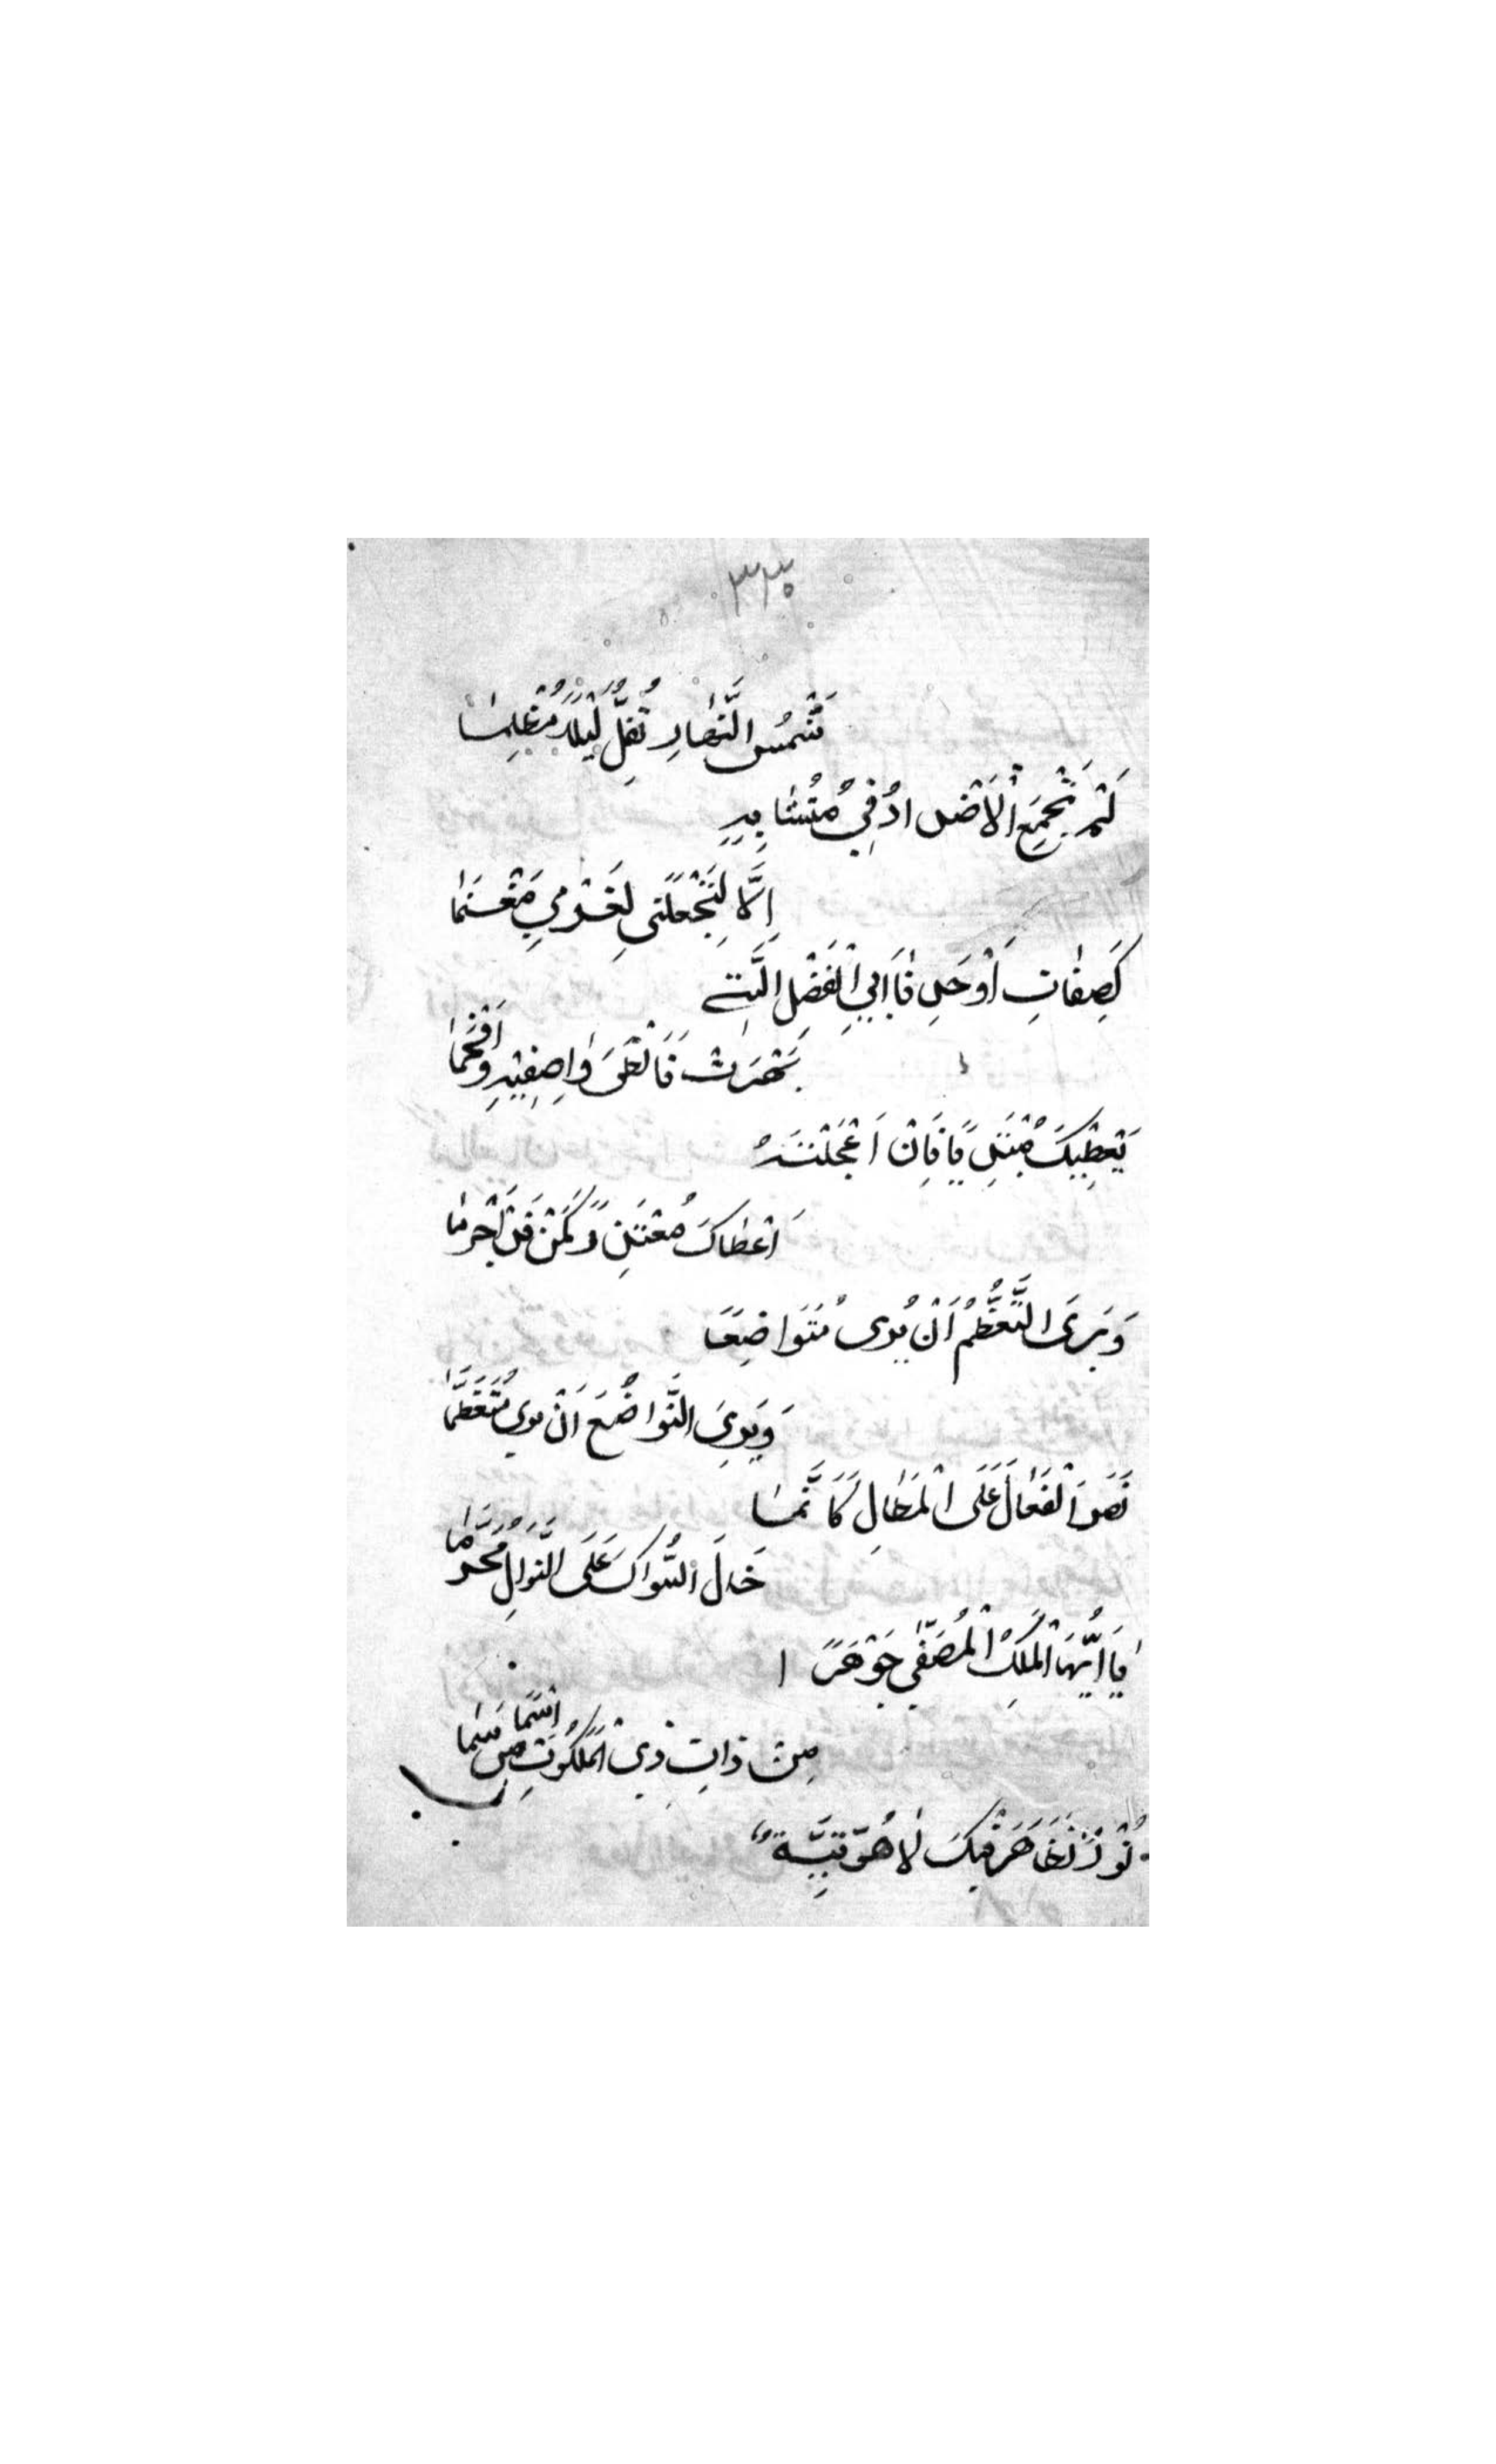 ٣٣٥
شَمْسُ النَّهارِ تُقِلُّ لَيْلاً مُظْلِمَا
لَمْ تُجْمَعِ الْاَضْدادُ فِي مُتَشَابِهٍ
اِلَّا لِتَجْعَلَنِى لِغُرْمِي مَغْنَمَا
كَصِفاتِ اَوْحَدِنَا اَبِي الْفَضْلِ الَّتِي
بَهَرَتْ فَاَنْطَقَ وَاصِفِيْهِ وَاَفْحَمَا
يُعْطِيْكَ مُبْتَدِيًا فَاِنْ اَعْجَلْتَهُ
اَعْطَاكَ مُعْتَذِرًا كَمَنْ قَدْ اَجْرَمَا
وَيَرَى التَّعَظُّمَ اَنْ يُرى مُتَوَاضِعًا
وَيَرَى التَّوَاضُعَ اَنْ يرى مُتَعَظِّمَا
نَصَرَ الْفَعَالَ عَلَى الْمِطَالِ كَاَنَّمَا
خَالَ السُّؤَالَ عَلَى النَّوَالِ مُحَرَّمَا
يَا اَيُّهَا الْمَلِكُ الْمُصَفَّى جَوْهَرًا
مِنْ ذَاتِ ذِي الْمَلَكُوْتِ اَسْمَا مَنْ سَمَا
نُوْرٌ تَظَاهَرَ فِيْكَ لَاهُوْتِيَّةً